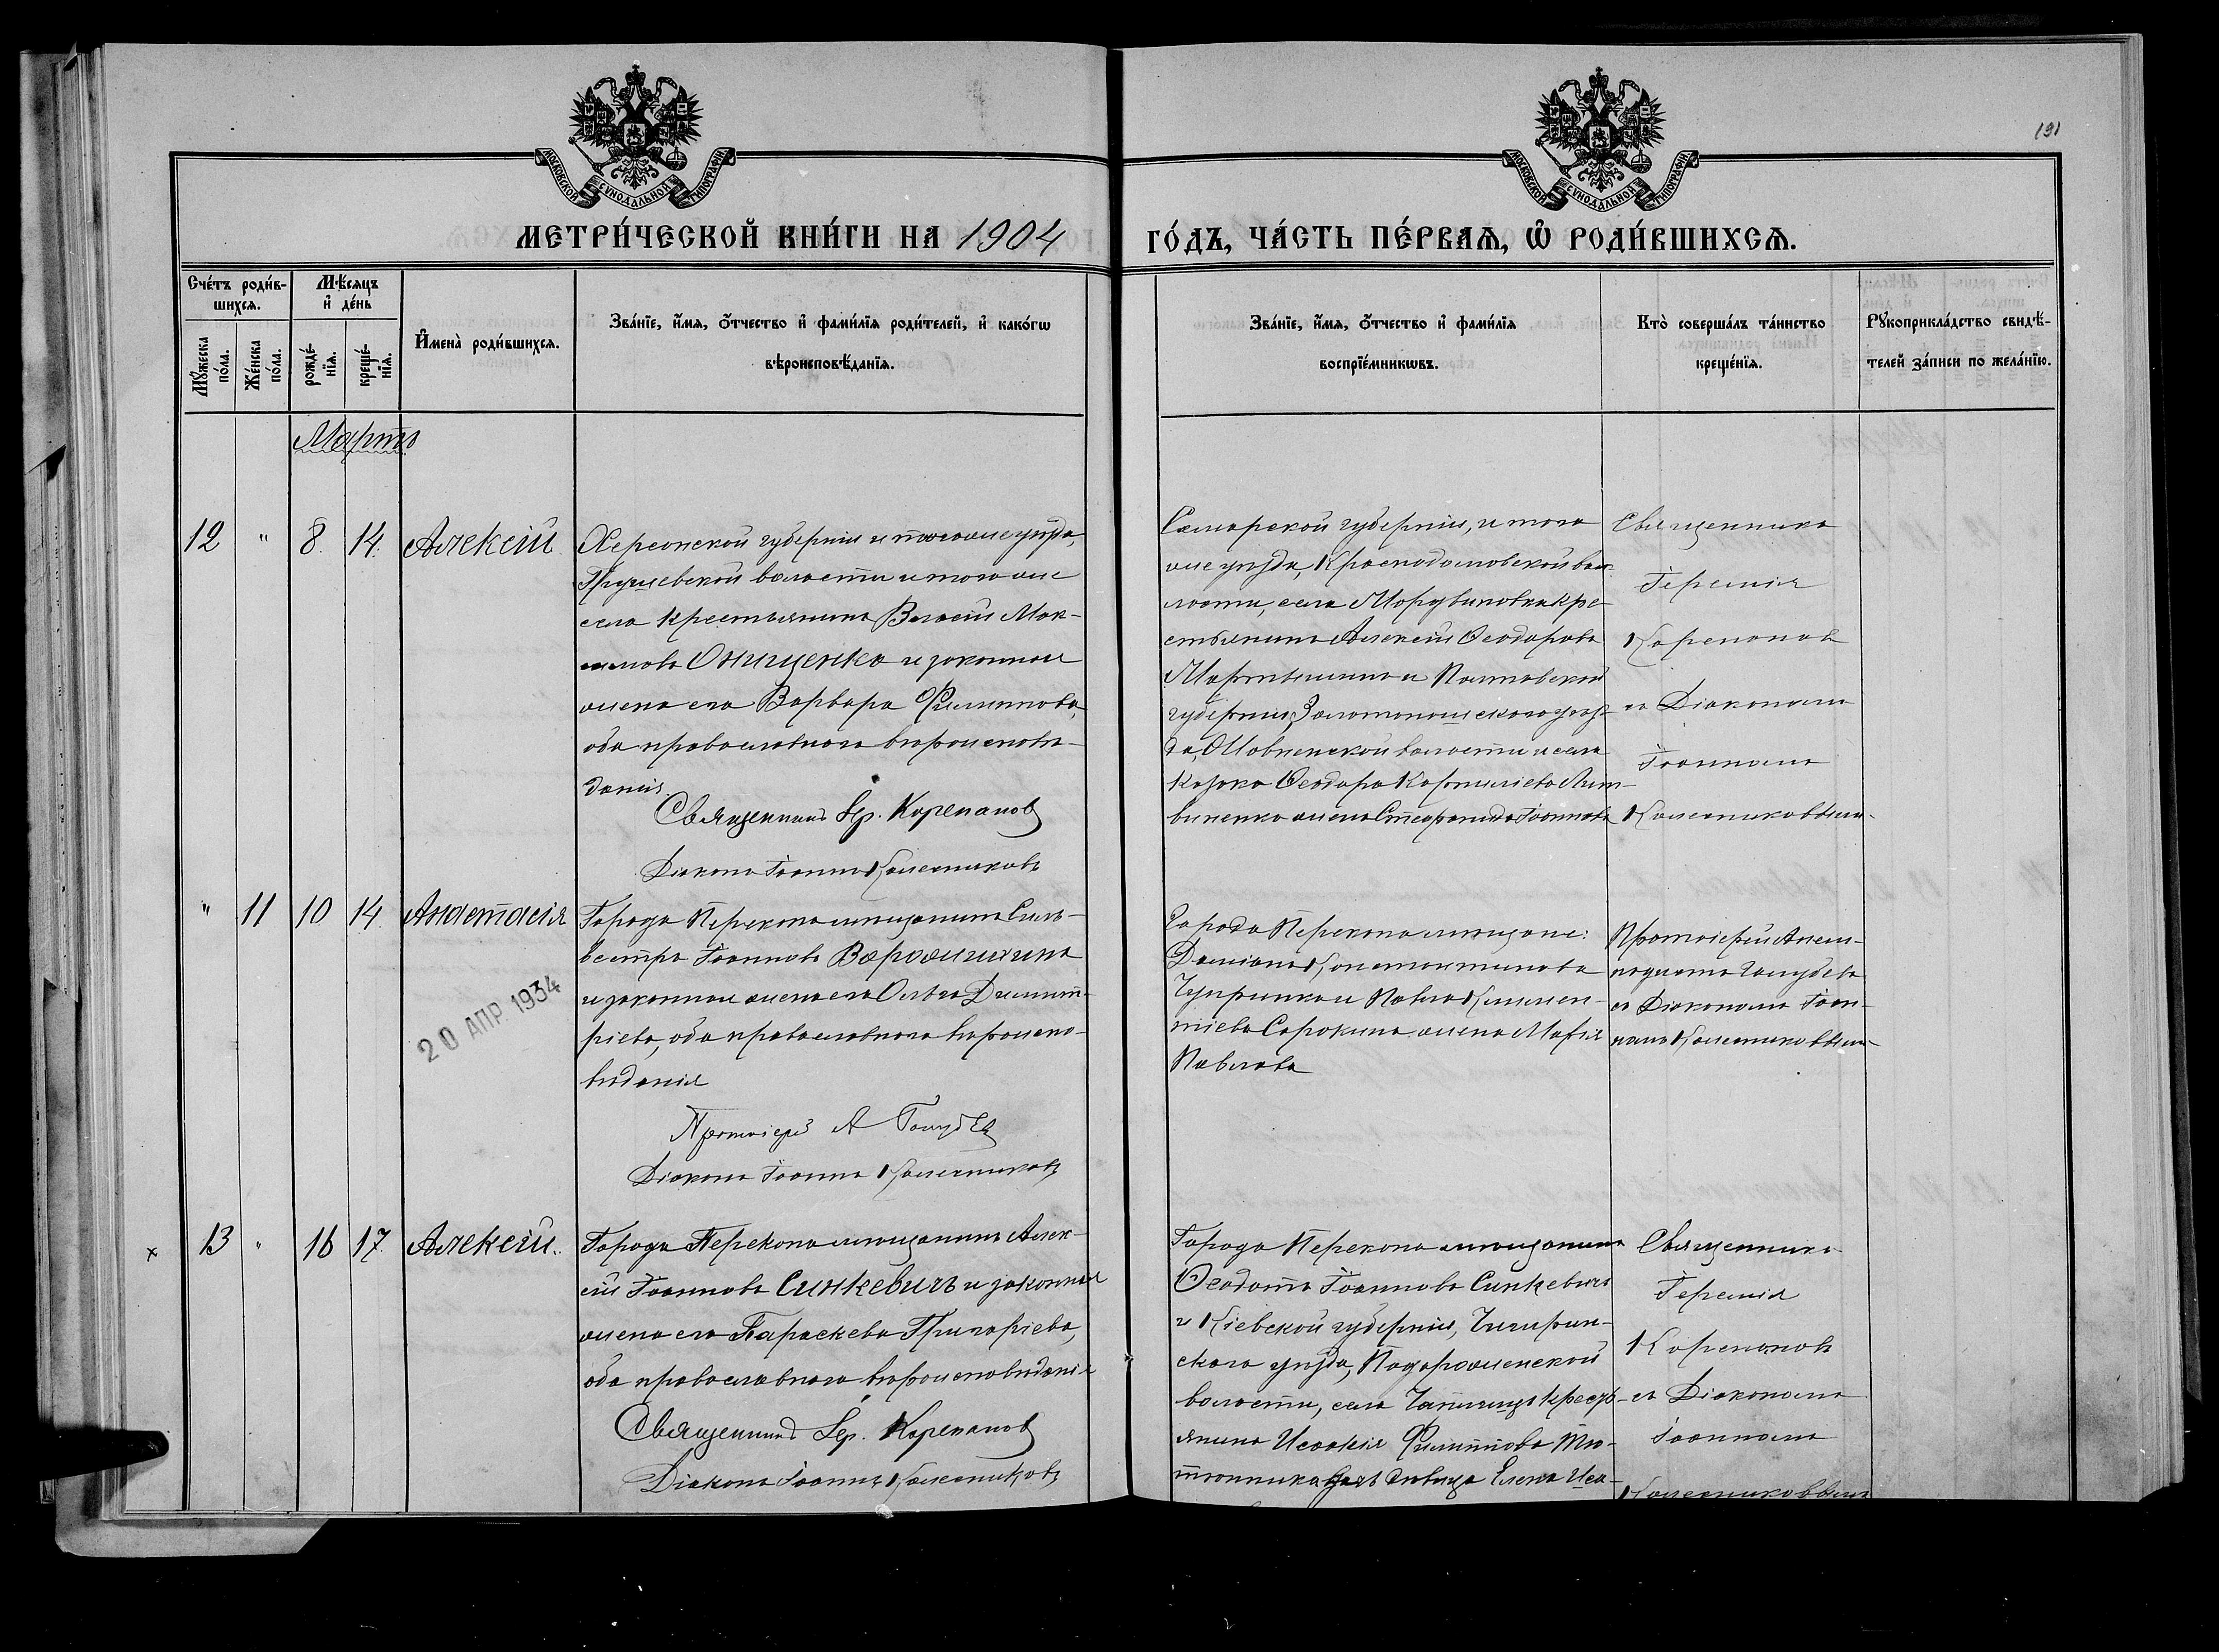 191
МОСКОВСКОЙ СѴНОДАЛЬНОЙ ТИПОГРАФІИ
МОСКОВСКОЙ СѴНОДАЛЬНОЙ ТИПОГРАФІИ
МЕТРИ́ЧЕСКОЙ КНИ́ГИ НА 1904
ГО́ДЪ, ЧА́СТЬ ПЕ́РВАѦ, Ѽ РОДИ́ВШИХСѦ.
Сче́тъ роди́в-
шихсѧ.
Мꙋ́жеска
по́ла.
Же́нска
по́ла.
Мѣ́сѧцъ
и҆ де́нь
рожде́-
нїѧ.
креще́-
нїѧ.
И҆мена̀ роди́вшихсѧ.
Зва́нїе, и҆́мѧ, ѻ҆́тчество и҆ фами́лїѧ роди́телей, и҆ како́гѡ
вѣроисповѣ́данїѧ.
Зва́нїе, и҆́мѧ, ѻ҆́тчество и҆ фами́лїѧ
воспрїе́мникѡвъ.
Кто̀ соверша́лъ та́инство
креще́нїѧ.
Рꙋкоприкла́дство свидѣ́-
телей за́писи по жела́нїю.
Мартъ
12 " 8. 14. Алексій
Херсонской губерніи и того же уѣзда,
Грушевской волости и того же
села крестьянинъ Власій Мак-
симовъ Онищенко и законная
жена его Варвара Филиппова,
оба православнаго вѣроисповѣ-
данія.
Священникъ Іер. Корепановъ
Діаконъ Іоаннъ Колесниковъ
Самарской губерніи, и того
же уѣзда, во-
лости, села Мордвиновки кре-
стьянинъ Алексій Ѳеодоровъ
и Полтавской
губерніи Золотоношскаго уѣз-
да, волости и села
козака Ѳеодора Лит-
виненко жена Стефанида Іоаннова
Священникъ
Іеремія
Корепановъ
съ Діакономъ
Іоанномъ
Колесниковымъ.
" 11 10 14. Анастасія
Города Перекопа мѣщанинъ Силь-
вестръ Іоанновъ Ворожихинъ
и законная жена его Ольга Димит-
ріева, оба православнаго вѣроиспо-
вѣданія
Протоіерей А Голубев
Діаконъ Іоаннъ Колесниковъ
20 АПР 1934
Города Перекопа мѣщане:
Даміанъ Константиновъ
Чупринка и Павла Климен-
тіева Сорокина жена Марія
Павлова
Протоіерей Анем-
подистъ Голубевъ
съ Діакономъ Іоан-
номъ Колесниковымъ
x 13 " 16 17. Алексій.
Города Перекопа мѣщанинъ Алек-
сій Іоанновъ Синкевичъ и законная
жена его Параскева Григоріева,
оба православнаго вѣроисповѣданія
Священникъ Іер. Корепановъ
Діаконъ Іоаннъ Колесниковъ
Города Перекопа мѣщанинъ
Ѳеодотъ Іоанновъ Синкевичъ
и Кіевской губерніи, Чигирин-
скаго уѣзда, Подорожненской
волости, села крестъ-
янина Исаакія Филиппова Тю-
тюнника дочь дѣвица Елена Иса-
Священникъ
Іеремія
Корепановъ
съ Діакономъ
Іоанномъ
Колесниковымъ